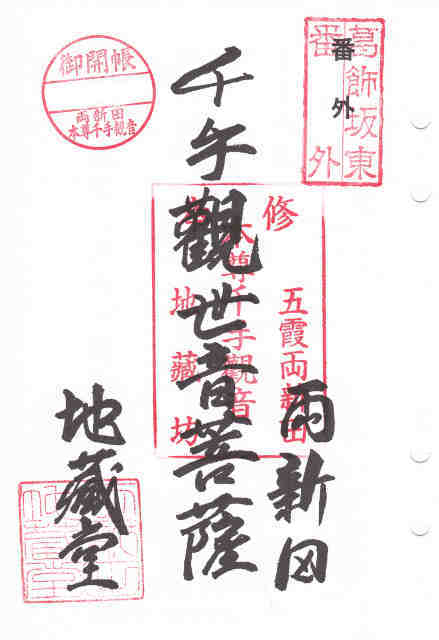 葛飾坂東
番外
番外
御開帳
両新田
本尊千手觀音
修
五霞両新田
本尊千手觀音
地藏坊
両新田
千手觀世音菩薩
地藏堂